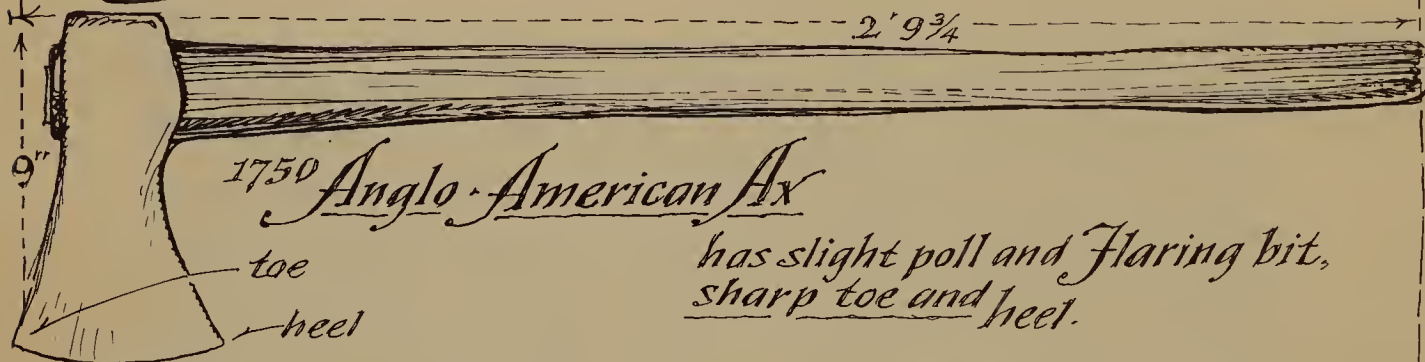 2' 9 3/4
9"
1750 Anglo-American Ax
has slight poll and Flaring bit,
sharp toe and heel.
toe
heel